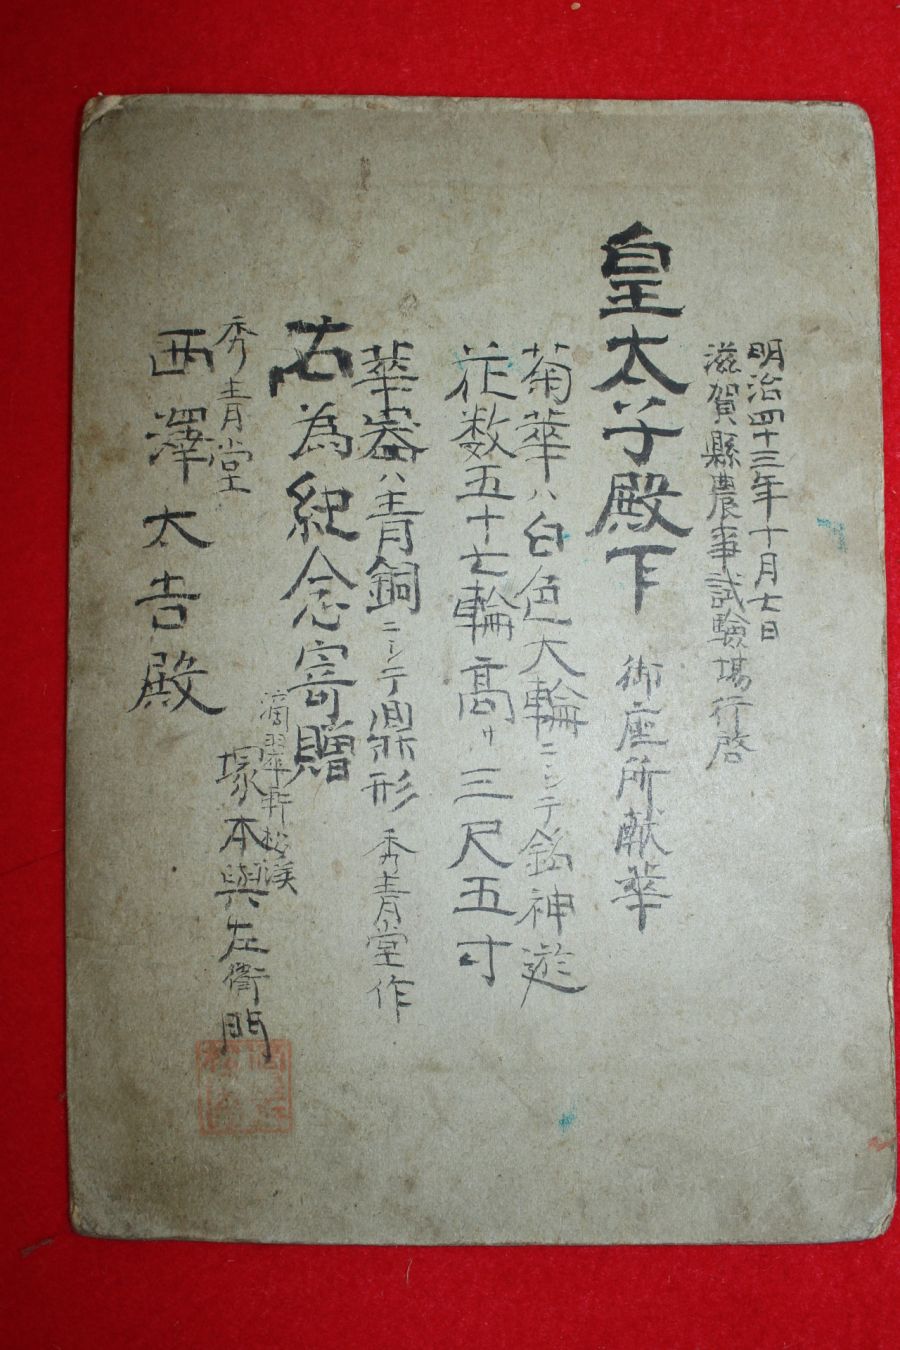 明治四十三年十月七日
滋賀縣農事試驗場行啓
皇太子殿下 御座所献華
菊華ハ白色大輪ニシテ銘神遊
花数五十七輪高サ三尺五寸
華器ハ青銅ニシテ鼎形 秀青堂作
右為紀念寄贈
滴翠軒松渓
塚本與左衛門
秀青堂
西澤太吉殿